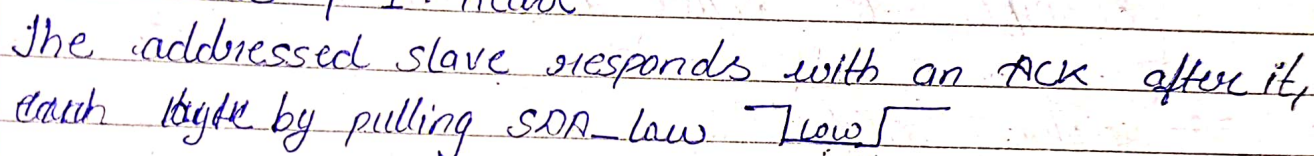 The addressed slave responds with an ACK after it,
each byte by pulling SDA_law low